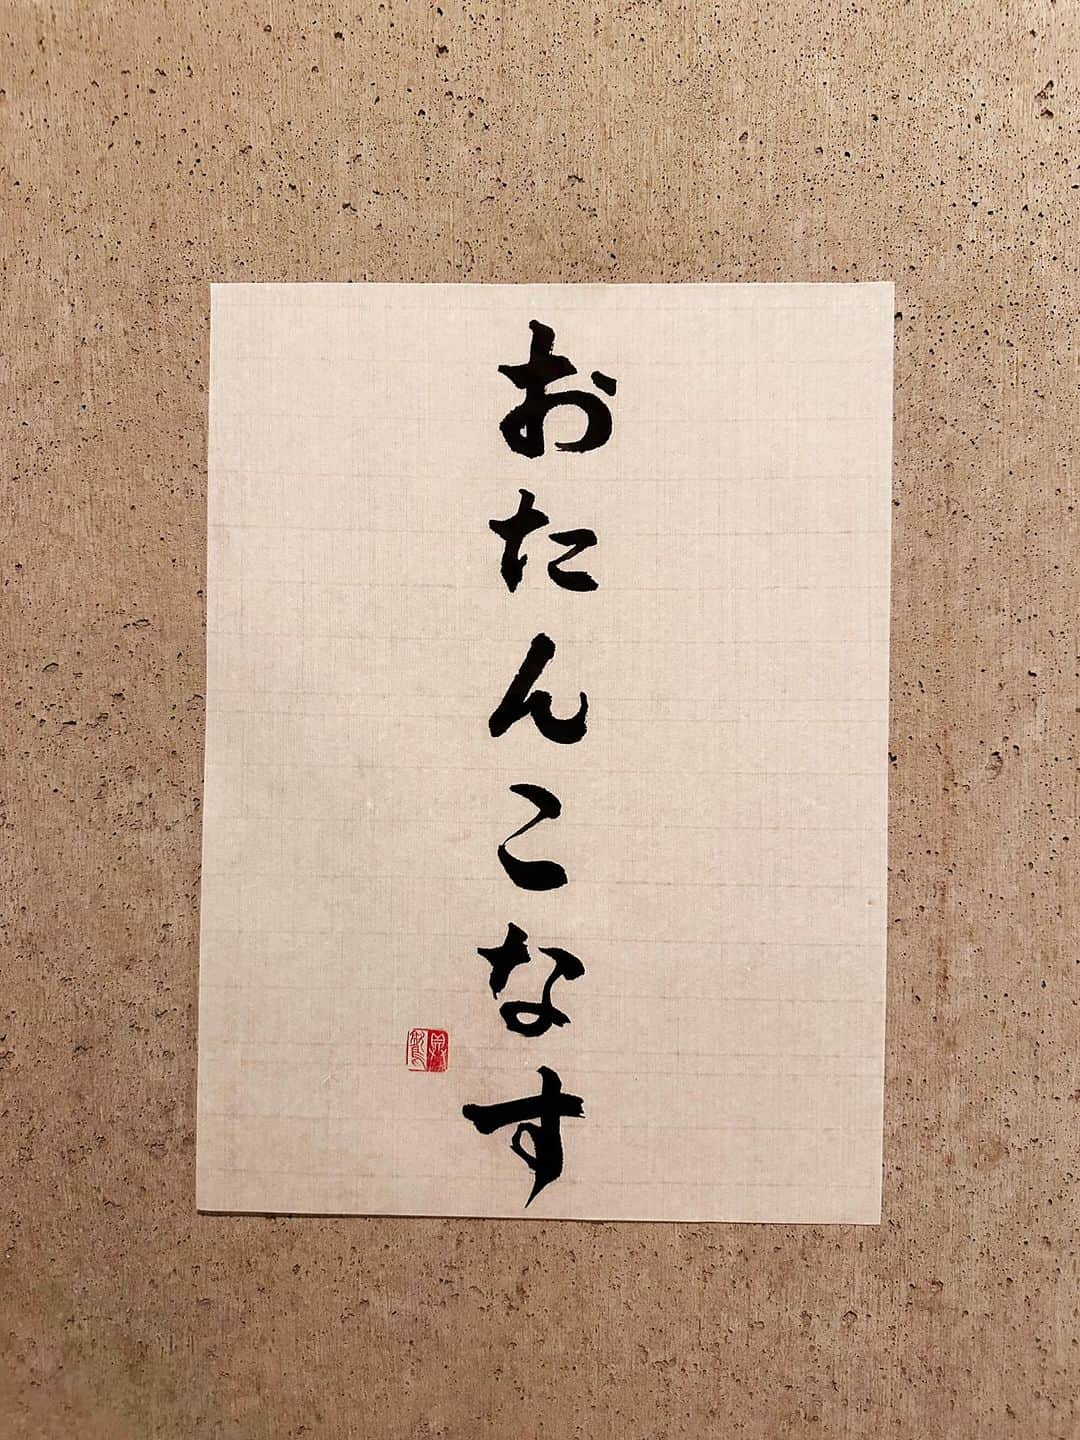 おたんこなす